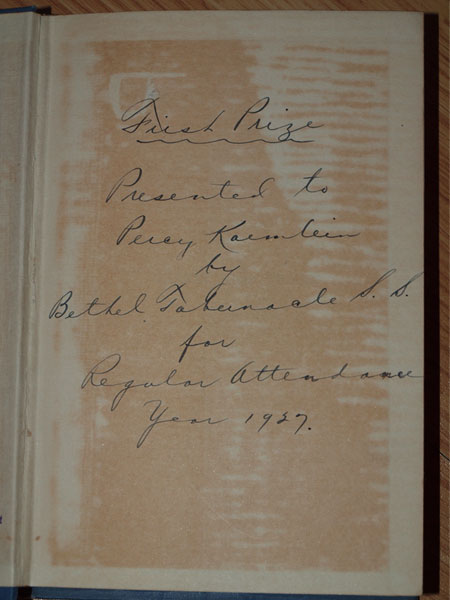 First Prize
Presented to
Percy Kaemlein
by
Bethel Tabernacle S. S.
for
Regular Attendance
Year 1937.